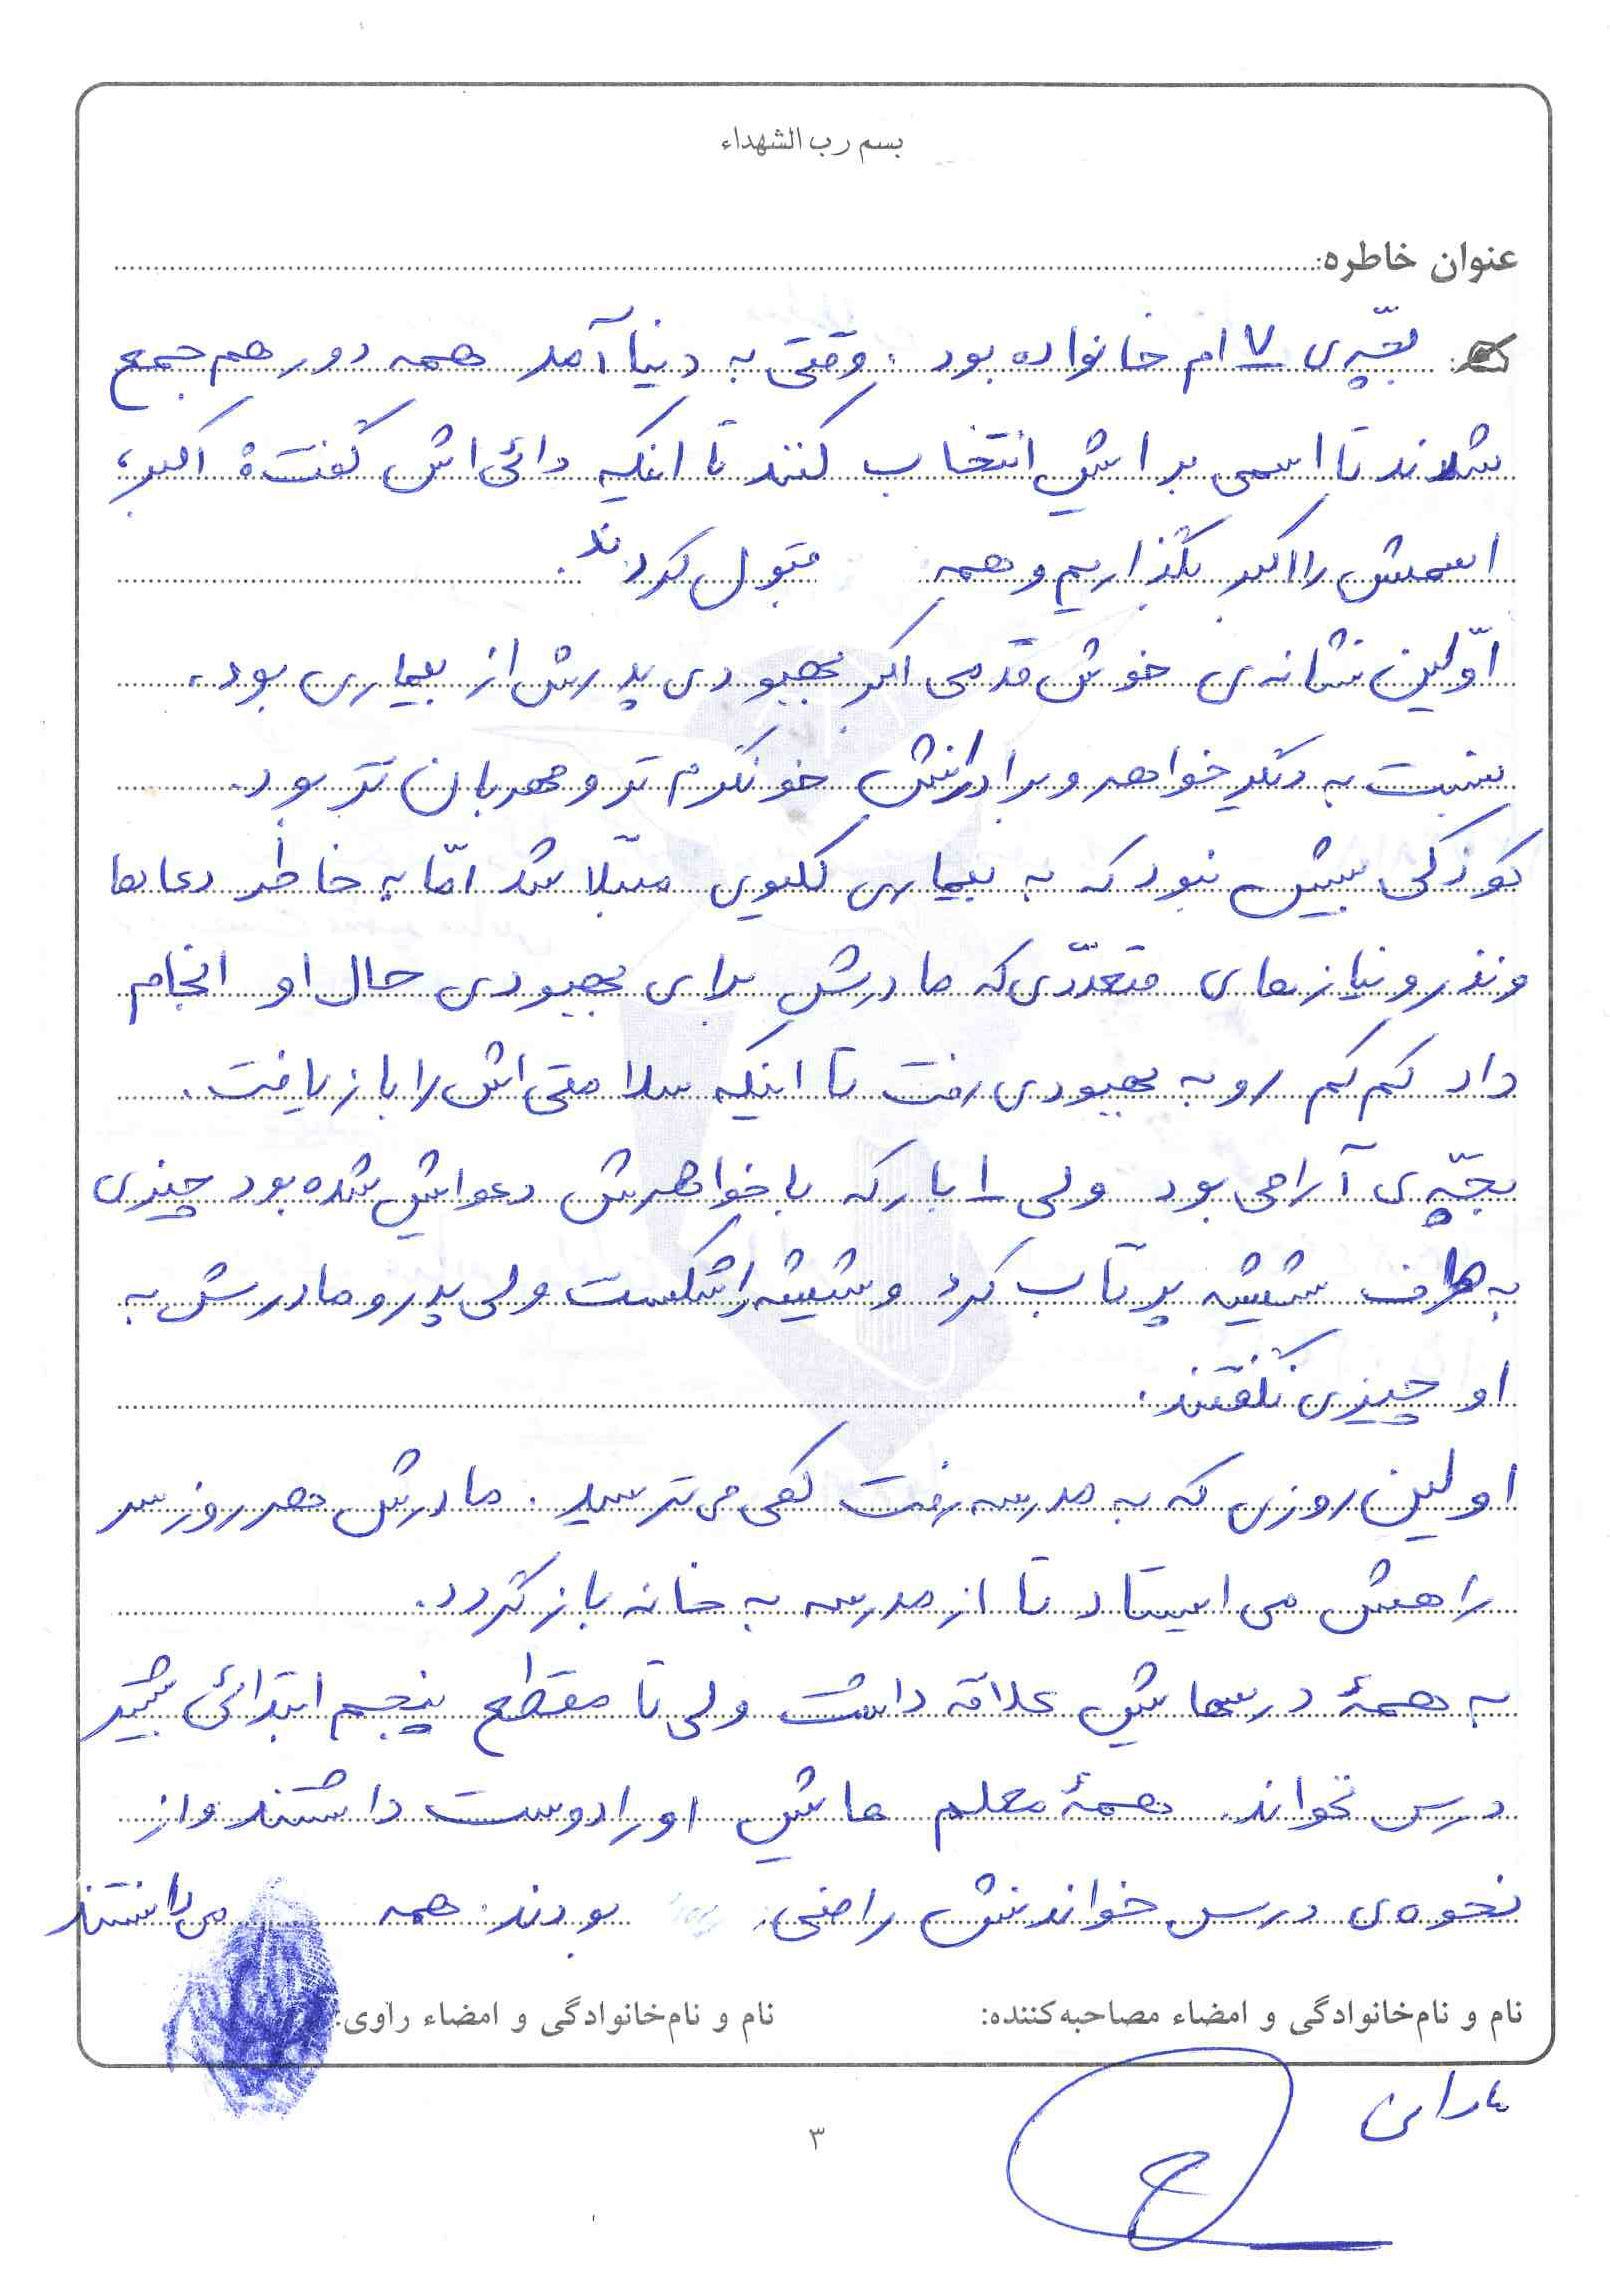 بسم رب الشهداء
عنوان خاطره:
بچّه‌ی ۷ ام خانواده بود. وقتی به دنیا آمد همه دور هم جمع
شدند تا اسمی براش انتخاب کنند تا اینکه دائی‌اش گفت: اکبر،
اسمش را اکبر بگذاریم و همه قبول کردند.
اوّلین نشانه‌ی خوش قدمی اکبر بهبودی پدرش از بیماری بود.
نسبت به دیگر خواهر و برادرانش خونگرم تر و مهربان تر بود.
کودکی بیش نبود که به بیماری کلیوی مبتلا شد امّا به خاطر دعاها
و نذر و نیازهای متعدّدی که مادرش برای بهبودی حال او انجام
داد کم کم رو به بهبودی رفت تا اینکه سلامتی‌اش را باز یافت.
بچّه‌ی آرامی بود ولی ۱ بار که با خواهرش دعواش شده بود چیزی
به طرف شیشه پرتاب کرد و شیشه را شکست ولی پدر و مادرش به
او چیزی نگفتند.
اولین روزی که به مدرسه رفت کمی می‌ترسید. مادرش هر روز سر
راهش می‌ایستاد تا از مدرسه به خانه باز گردد.
به همهٔ درسهایش علاقه داشت ولی تا مقطع پنجم ابتدائی بیشتر
درس نخواند. همهٔ معلم هایش او را دوست داشتند و از
نحوه‌ی درس خواندنش راضی بودند. همه می‌دانستند
نام و نام‌خانوادگی و امضاء مصاحبه‌کننده:
نام و نام‌خانوادگی و امضاء راوی:
۳